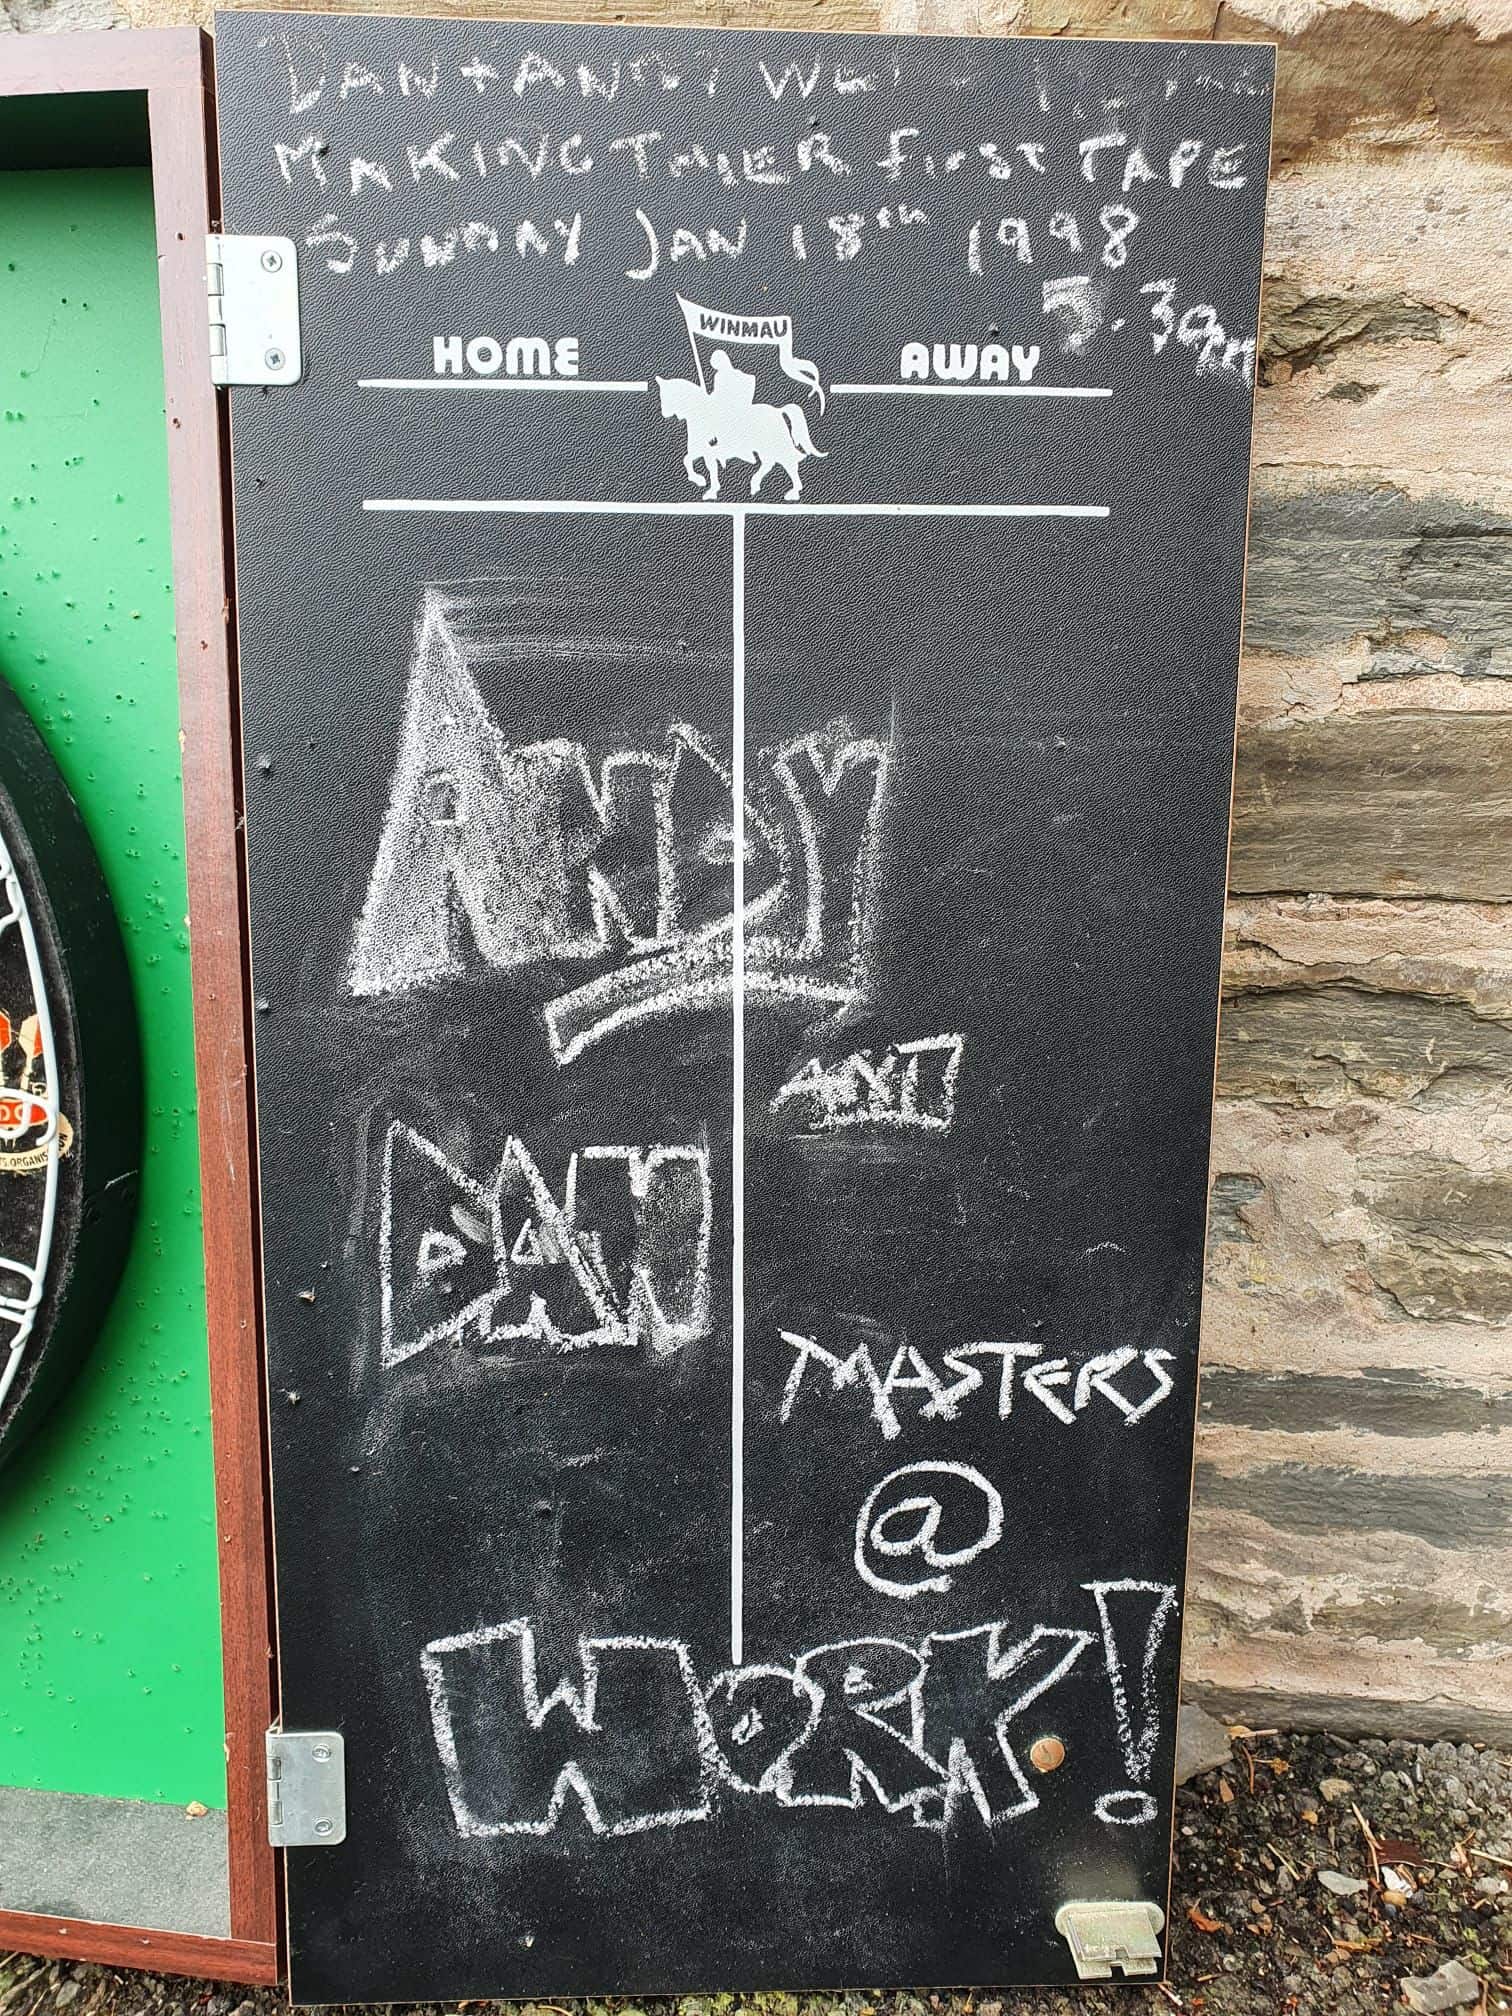 DAN + ANDY WE
MAKING THIER first TAPE
SUNDAY JAN 18th 1998
5.30pm
WINMAU
HOME AWAY
ANDY
AND
DAN
MASTERS
@
WORK!